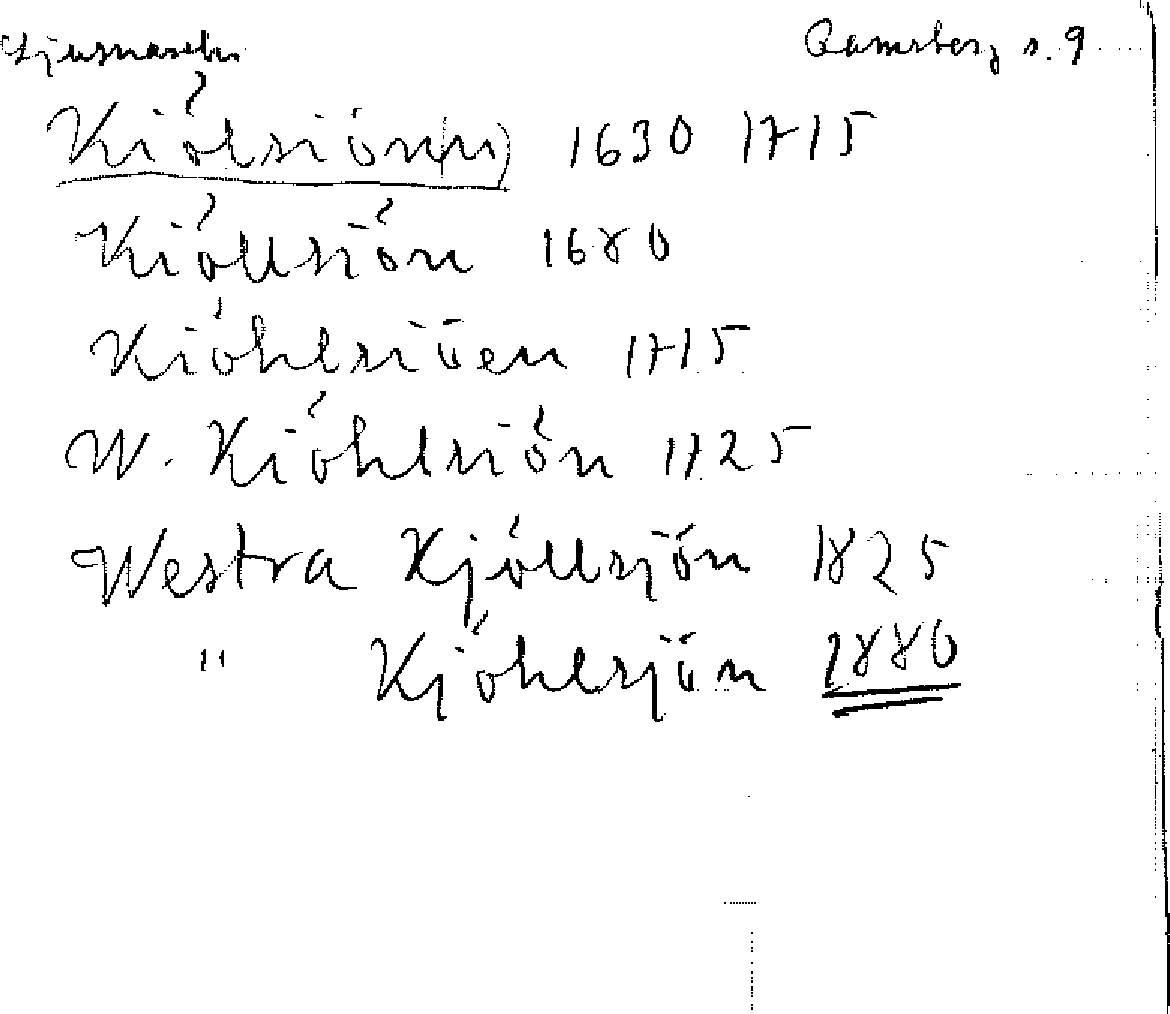 Ljusnarsbn Ramsberg s. 9
Kiölsiön(n) 1630 1715
Kiöllsiön 1680
Kiöhlsiöen 1715
W. Kiöhlsiön 1725
Westra Kjöllsjön 1825
" Kjöhlsjön 1880